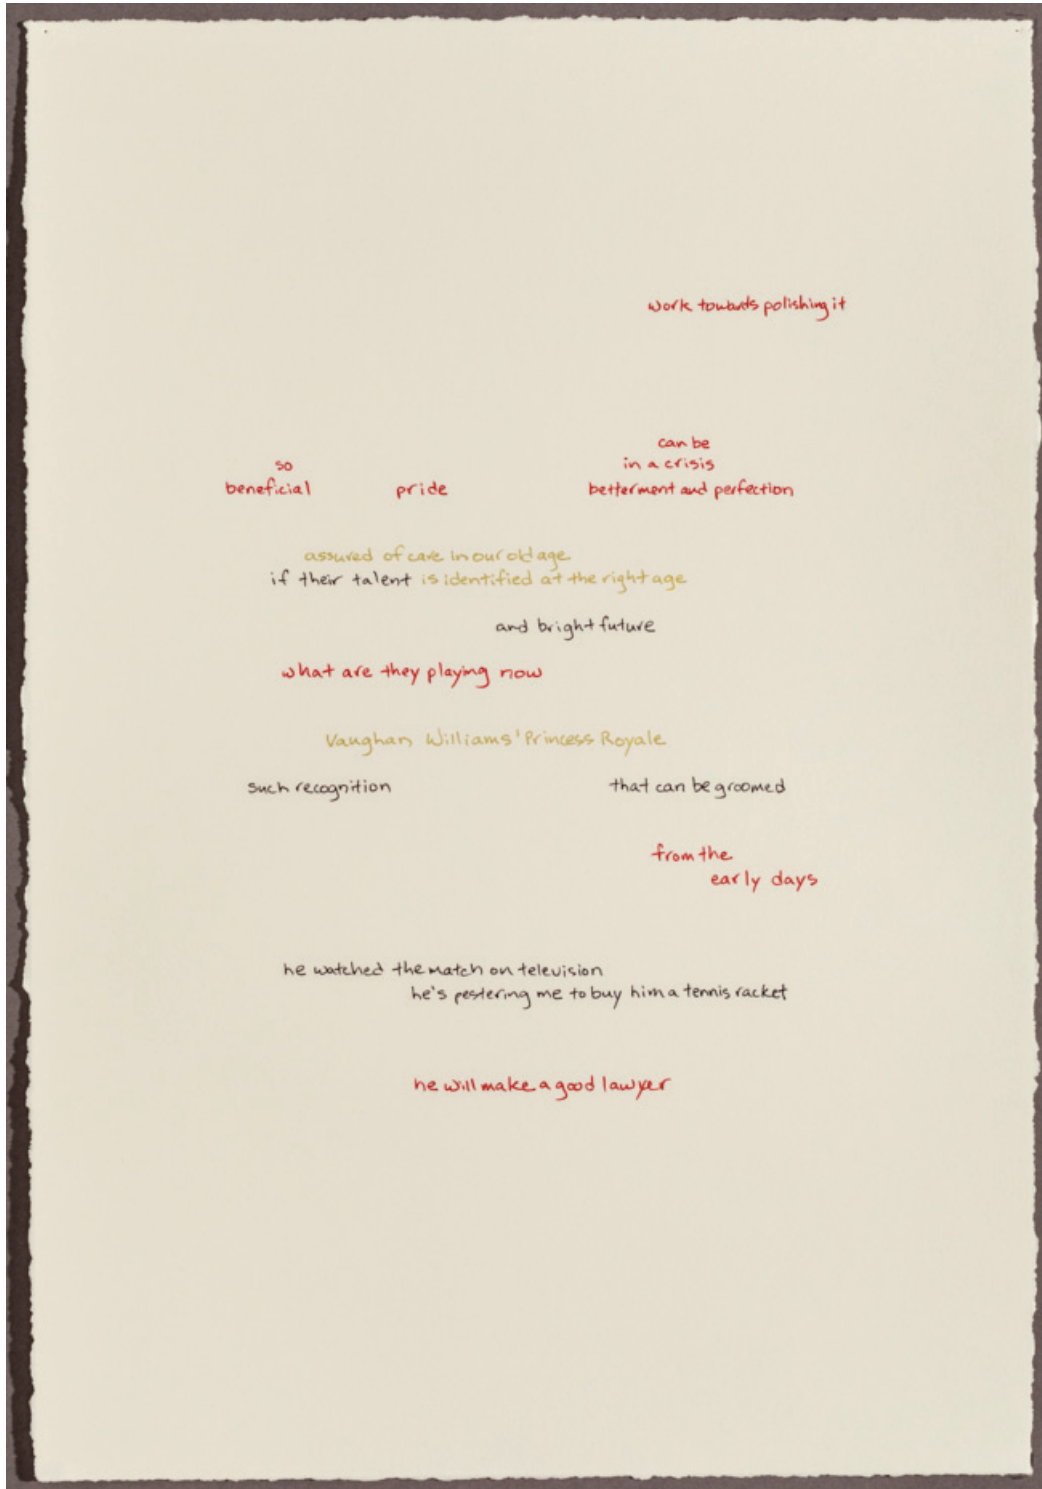 work towards polishing it
can be
so in a crisis
beneficial pride betterment and perfection
assured of care in our old age
if their talent is identified at the right age
and bright future
what are they playing now
Vaughan Williams' Princess Royale
such recognition that can be groomed
from the
early days
he watched the match on television
he's pestering me to buy him a tennis racket
he will make a good lawyer